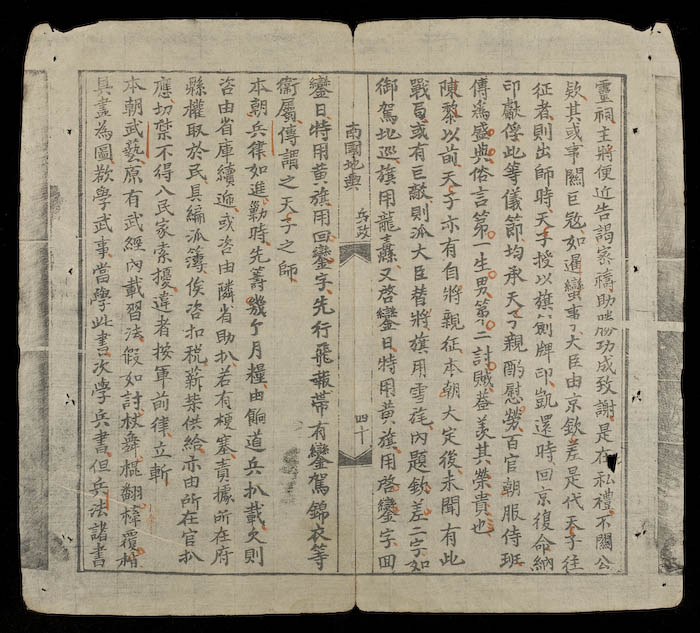 靈祠主將便近告謁密禱助勝功成致謝是在私禮不關公
欵其或事關巨寇如暹蠻事丁大臣由京欽差是代天子往
征者則出師時天子授以旗劍牌印凱還時回京復命納
印獻俘此等儀節均承天子親酌慰勞百官朝服侍班
傳爲盛典俗言第一生男第二討賊蓋羡其榮貴也
陳黎以前天子亦有自將親征本朝大定後未聞有此
戰局或有巨敵則派大臣替將旗用雪旄內題欽差二字如
御駕地巡旗用龍纛又啓鑾日特用黄旗用啓鑾字回
南國地輿 兵政 四十
鑾日特用黄旗用回鑾字先行飛報帶有鑾駕錦衣等
衛屬傳謂之天子之師
本朝兵律如進勦時先籌幾个月糧由餉道兵扒載欠則
咨由省庫續遞或咨由隣省助扒若有梗塞責據所在府
縣權取於民具編派簿俟咨扣稅薪柴供給亦由所在官扒
應切禁不得入民家索擾違者按軍前律立斬
本朝武藝原有武經內載習法假如討杖舞棍翻棒覆楯
具畫為圖欵學武事當學此書次學兵書但兵法諸書